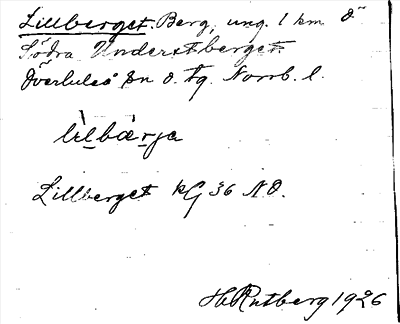 Lillberget. Berg, ung. 1 km Ö
Södra Understberget.
Överluleå sn o. tg. Norrb. l.
Lillberget KG 36 NO.
H Rutberg 1926